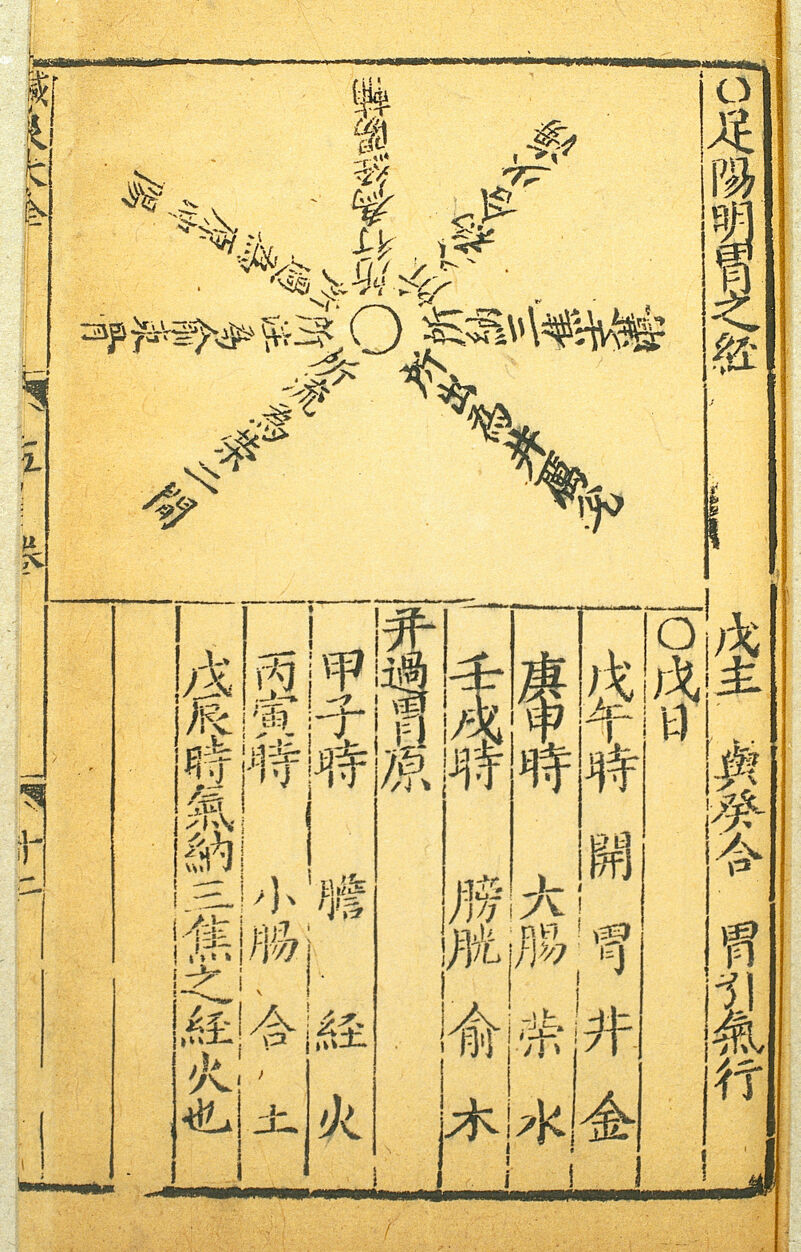 ○足陽明胃之経
所行為経陽輔
所入為合小海
所納三焦支溝
所出為井厲兌
所流為荣二間
所注為俞束骨
所過為原衝陽
戊主 與癸合 胃引氣行
○戊日
戊午時 開 胃 井 金
庚申時 大腸 荣 水
壬戌時 膀胱 俞 木
并過胃原
甲子時 膽 経 火
丙寅時 小腸 合 土
戊辰時氣納三焦之経火也
十二